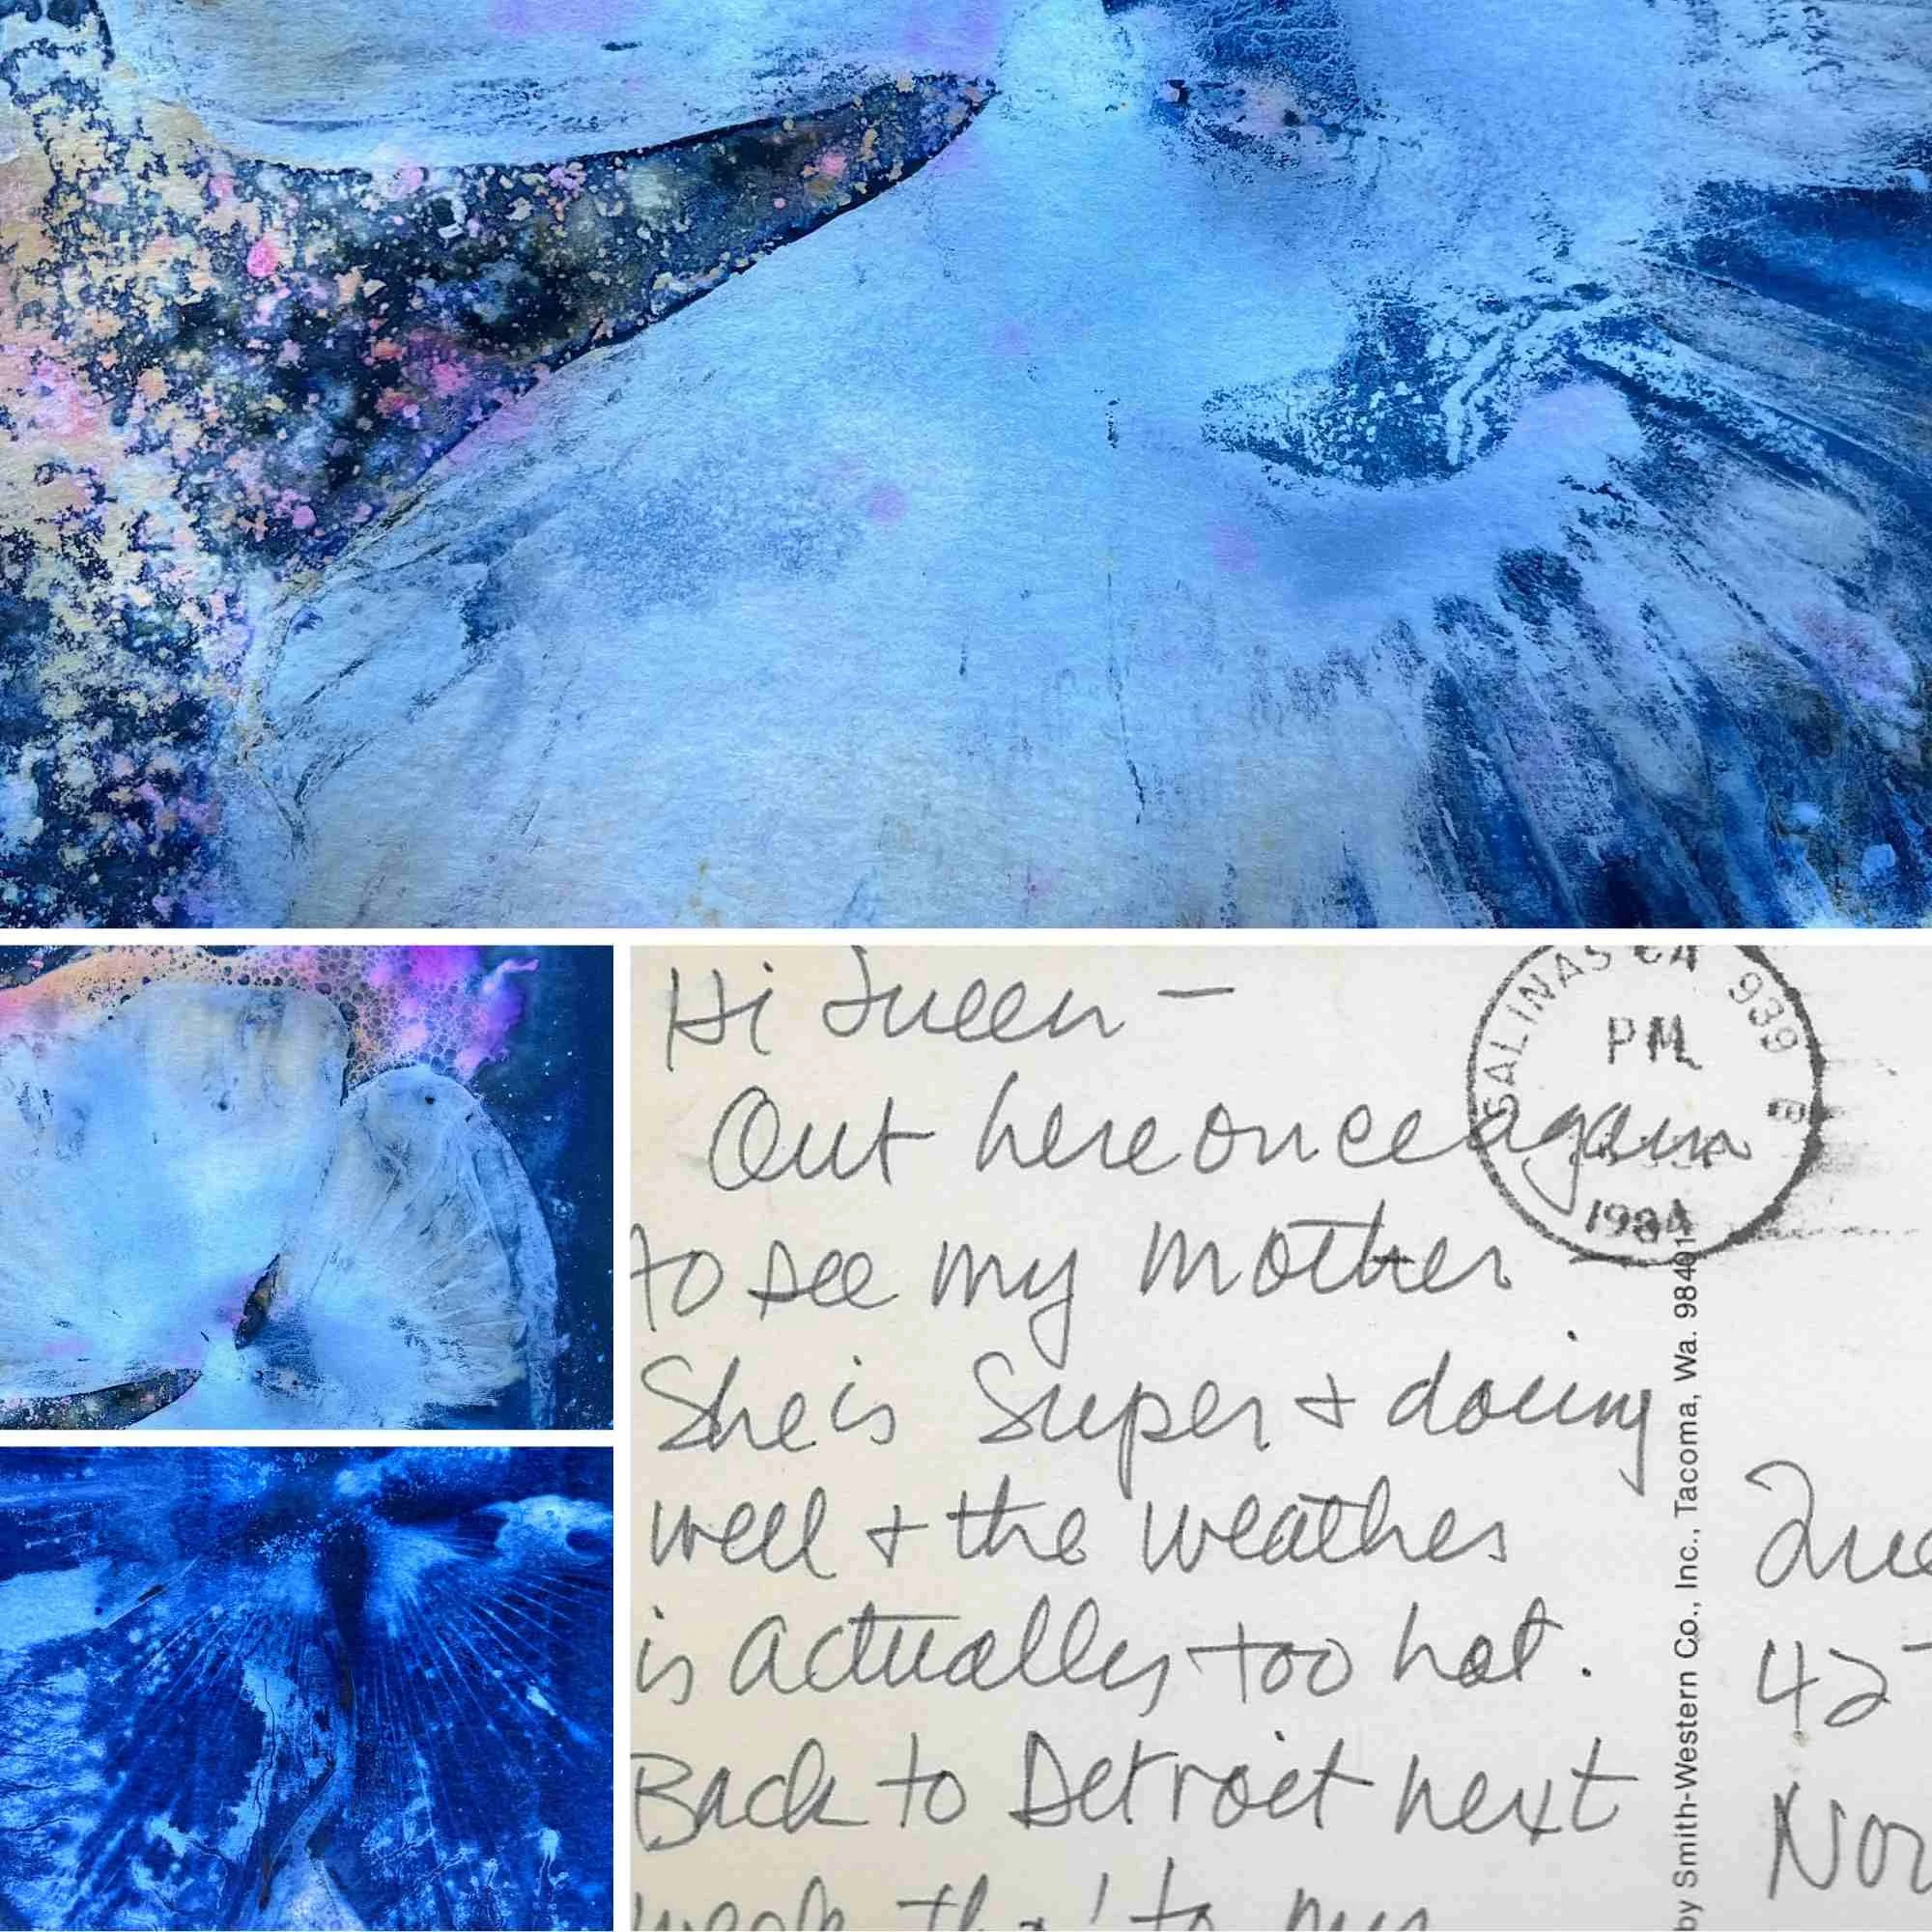 Hi Queen —
Out here once again
to see my mother
She is Super + doing
well + the weather
is actually too hot.
Back to Detroit next
week tho' to my
SALINAS CA 939
PM
1984
by Smith-Western Co., Inc., Tacoma, Wa. 98401
42